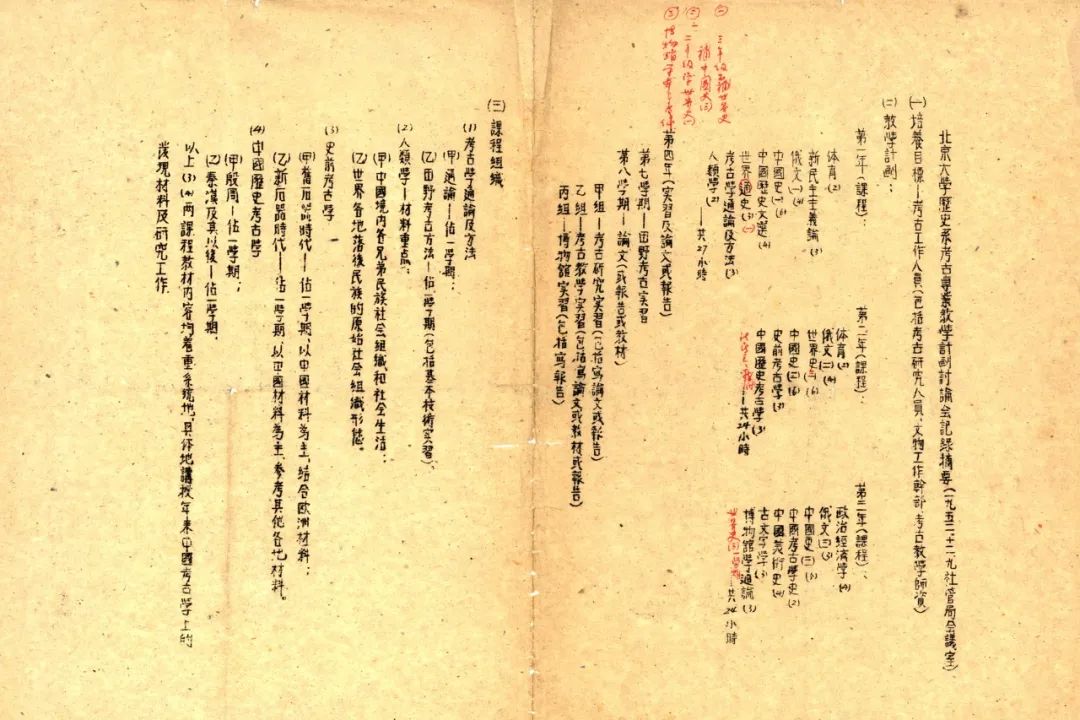 北京大學歷史系考古專業教學計劃討論會記錄摘要(一九五二、十二、九社管局會議室)
(一)培養目標—考古工作人員(包括考古研究人員、文物工作幹部、考古教學師資)
(二)教學計劃:
第一年(課程):
體育(2)
新民主主義論(3)
俄文(一)(4)
中國史(一)(6)
中國歷史文選(4)
世界通史(一)
考古學通論及方法(3)
人類學(2)
——共27小時
第二年(課程):
體育(2)
俄文(二)(4)
世界史(6)
中國史(二)(6)
史前考古學(3)
中國歷史考古學(3)
——共24小時
第三年(課程):
政治經濟學(4)
俄文(三)(3)
中國史(三)(3)
中國考古學史(2)
中國美術史(4)
古文字學(3)
博物館學通論(3)
——共24小時
(一)三年級補世界史
補中國史(三)
(二)一、二年級學世界史
(三)博物館學
第四年(實習及論文或報告)
第七學期—田野考古實習
第八學期—論文(或報告或教材)
甲組—考古研究實習(包括寫論文或報告)
乙組—考古教學實習(包括寫論文或教材或報告)
丙組—博物館實習(包括寫報告)
(三)課程組織
(1)考古學通論及方法
(甲)通論—佔一學期;
(乙)田野考古方法—佔一學期(包括基本技術實習);
(2)人類學—材料重點:
(甲)中國境內各兄弟民族社會組織和社会生活;
(乙)世界各地落後民族的原始社会組織形態。
(3)史前考古學
(甲)舊石器時代—佔一學期,以中國材料為主,結合欧洲材料;
(乙)新石器時代—佔一學期,以中國材料為主,參考其他各地材料。
(4)中國歷史考古學
(甲)殷周—佔一學期;
(乙)秦漢及其以後—佔一學期.
以上(3)(4)兩課程教材內容均着重系統地,具体地講授年來中國考古學上的
發現材料及研究工作.